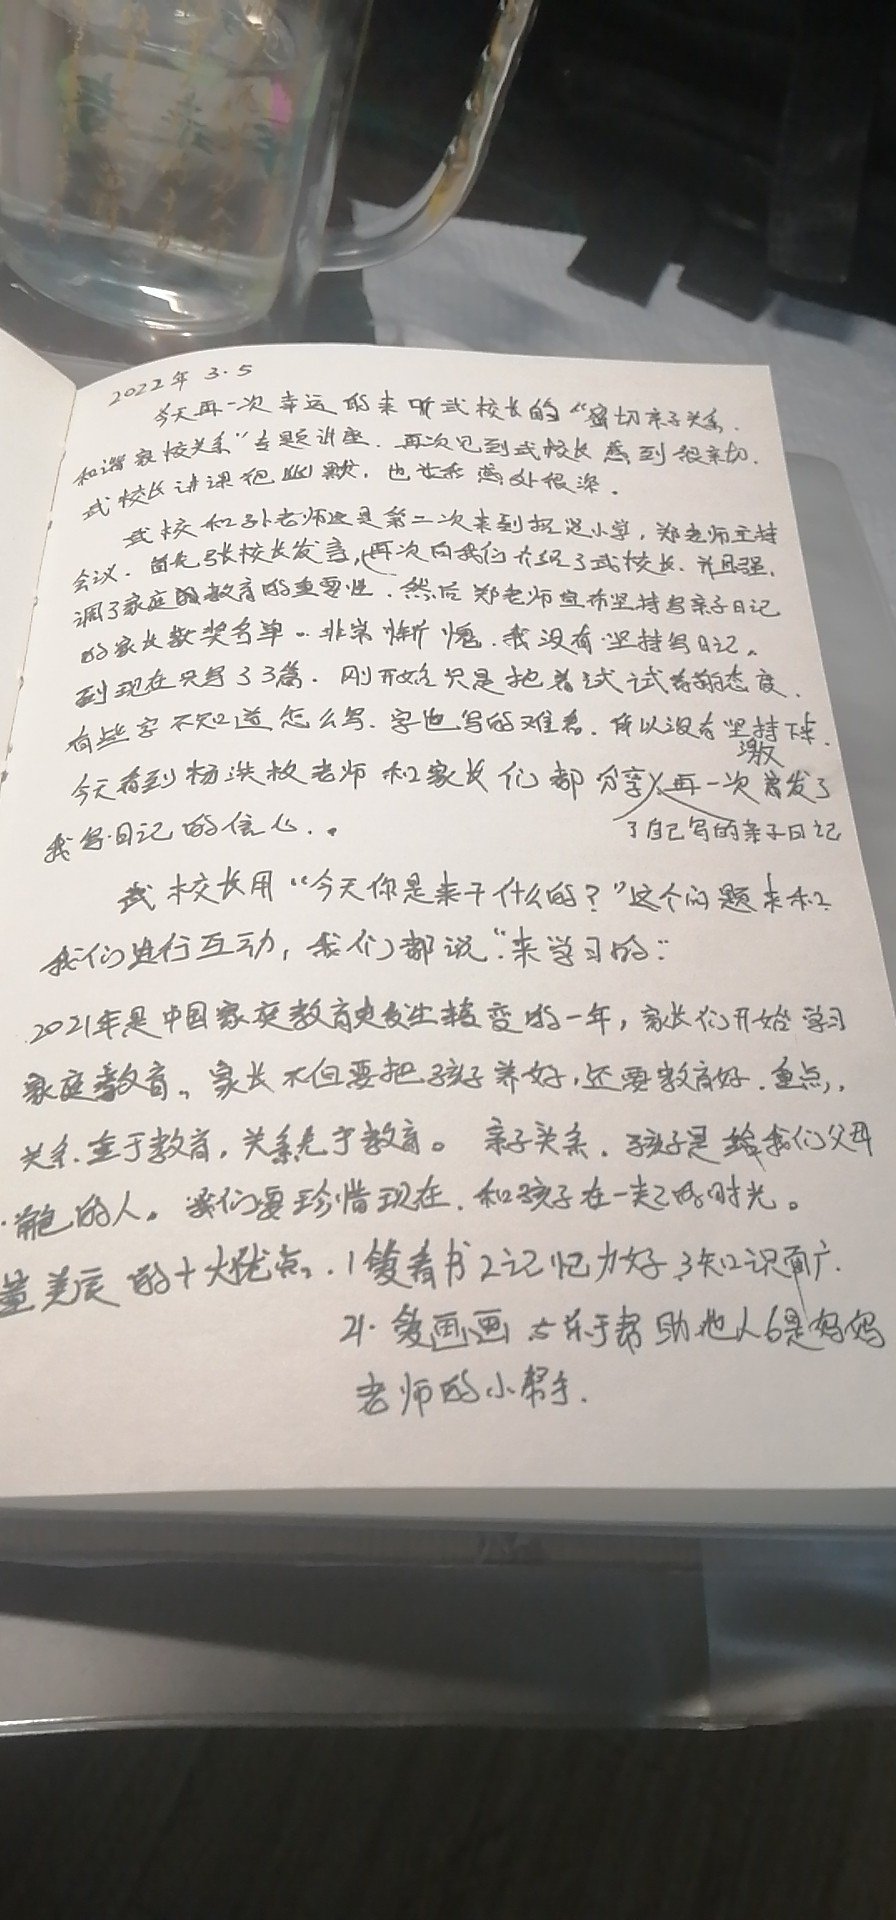 2022年 3.5
今天再一次幸运的来听武校长的“密切亲子关系.
和谐家校关系”专题讲座.再次见到武校长感到很亲切.
武校长讲课很幽默,也让我感处很深.
武校和孙老师这是第二次来到小学,郑老师主持
会议.首先张校长发言,再次向我们介绍了武校长.并且强.
调了家庭教育的重要性.然后郑老师宣布坚持写亲子日记
的家长获奖名单.非常惭愧.我没有坚持写日记.
到现在只写了3篇.刚开始只是抱着试试看的态度.
有些字不知道怎么写.字也写的难看.所以没有坚持下来.
今天看到杨洪枚老师和家长们都分享了自己写的亲子日记再一次激发了
我写日记的信心.
武校长用“今天你是来干什么的?”这个问题来和
我们进行互动,我们都说“来学习的”
2021年是中国家庭教育史发生转变的一年,家长们开始学习
家庭教育。家长不但要把孩子养好,还要教育好.重点,
关系.重于教育,关系先于教育。亲子关系.孩子是给我们父母
的人。我们要珍惜现在.和孩子在一起的时光。
董美辰的十大优点.1爱看书2记忆力好3知识面广.
4.爱画画5乐于帮助他人6是妈妈
老师的小帮手.